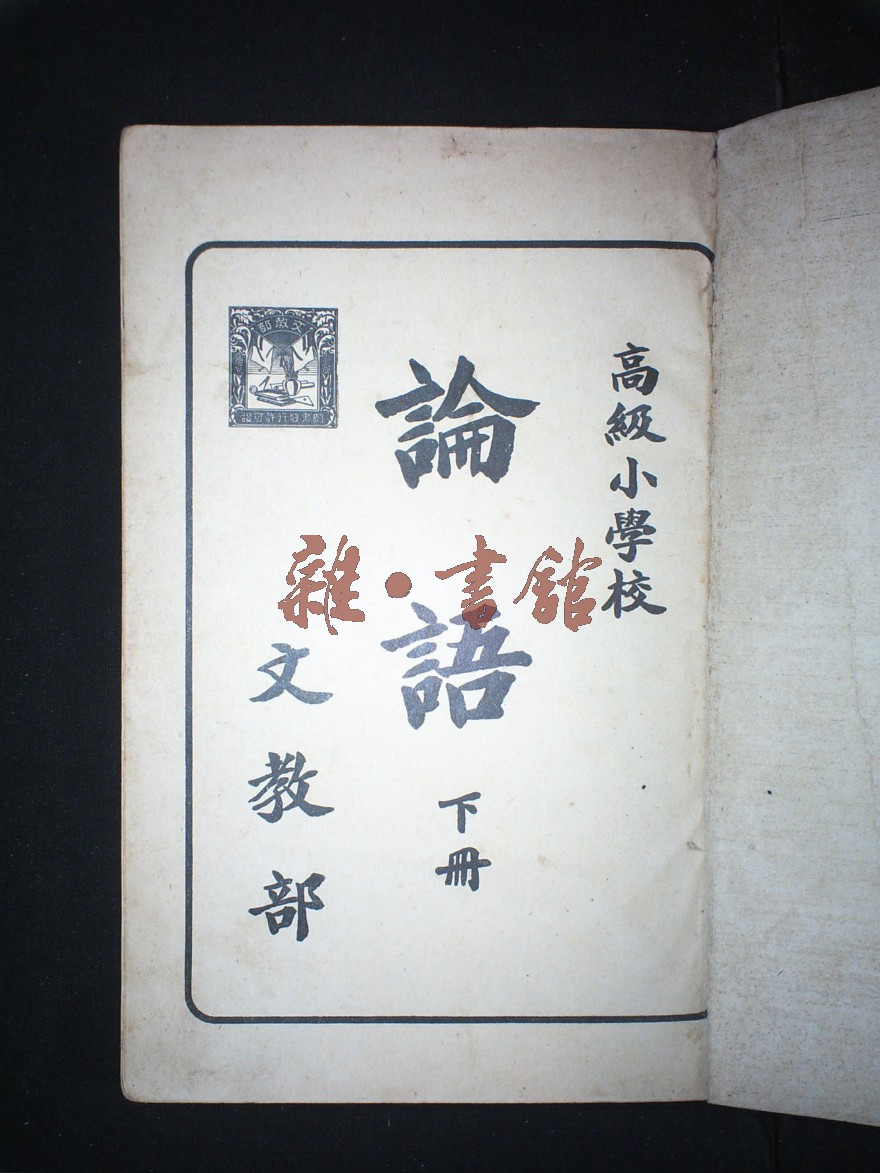 高級小學校
論語 下冊
文教部
文教部
圖書發行許可證
雜·書館